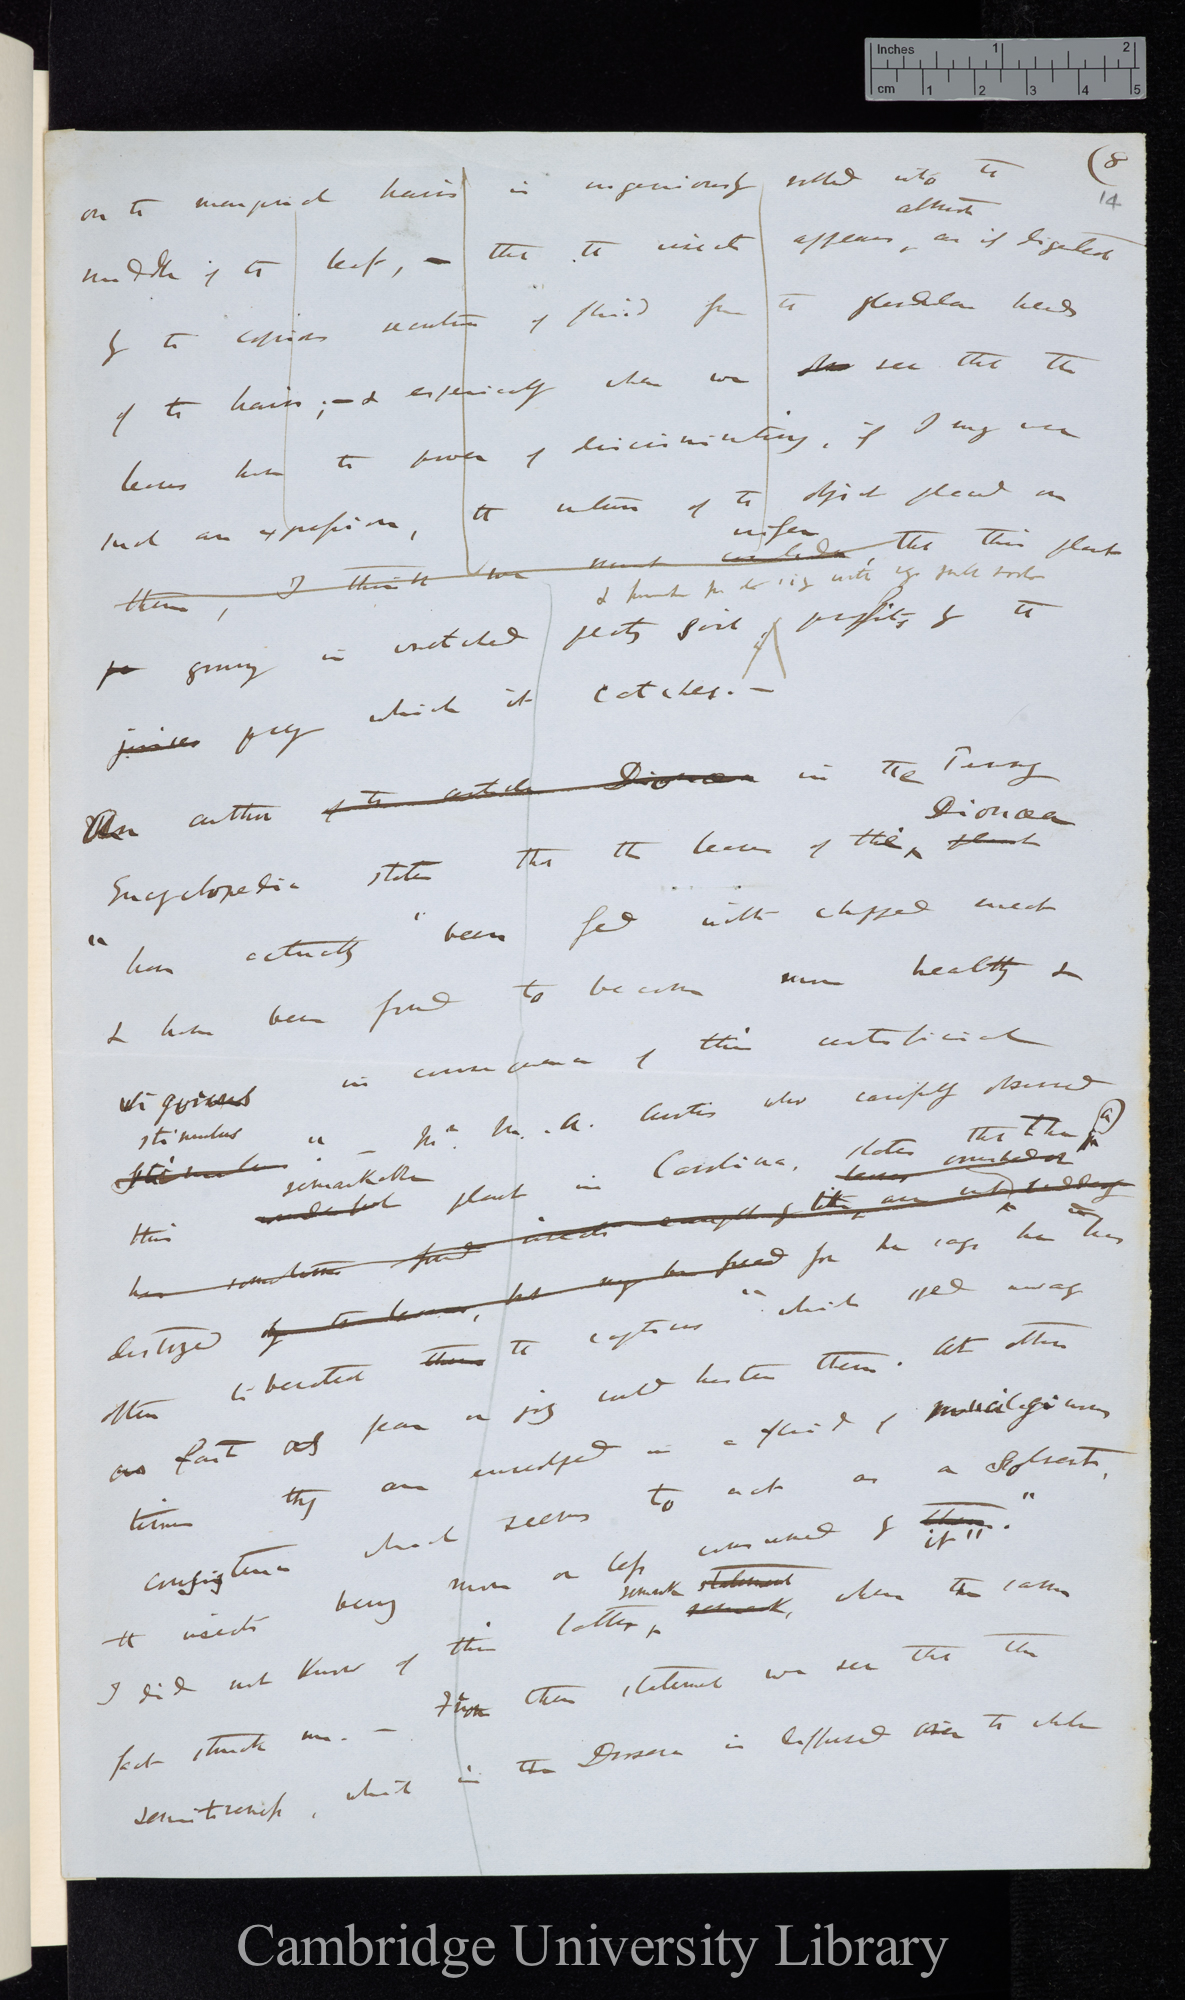 Inches 1 2
cm 1 2 3 4 5
(8
14
on the marginal hairs is ingeniously rolled into the
almost
middle of the leaf, — that the insect appears, as if digested
by the copious secretion of fluid from the glandular heads
of the hairs; — & especially when we see that the
leaves have the power of discriminating, if I may use
such an expression, the nature of the object placed on
infer
them, I think we must conclude, that this plant
growing in wretched peaty soil, profits by the
juices prey which it catches. —
author of the article Dionæa in the Penny
Dionæa
Encyclopedia states that the leaves of the plant
"have actually" been fed with chopped meat
& have been found to become more healthy &
vigorous in consequence of this artificial
stimulus
stimulus". — Mr. M. A. Curtis who carefully observed
remarkable
this wonderful plant in Carolina, states that the
leaves
have sometimes found insects caught by the
destroyed by the leaves, but may be freed for he says he has
often liberated them the captives "which sped away
as fast as fear or joy could hasten them. At other
times they are enveloped in a fluid of mucilaginous
consistence which seems to act as a solvent,
the insects being more or less consumed by them."
it"
remark statement
I did not know of this latter remark, when the same
fact struck me. — From these statements we see that the
sensitiveness, which in the Drosera is diffused over the whole
Cambridge University Library